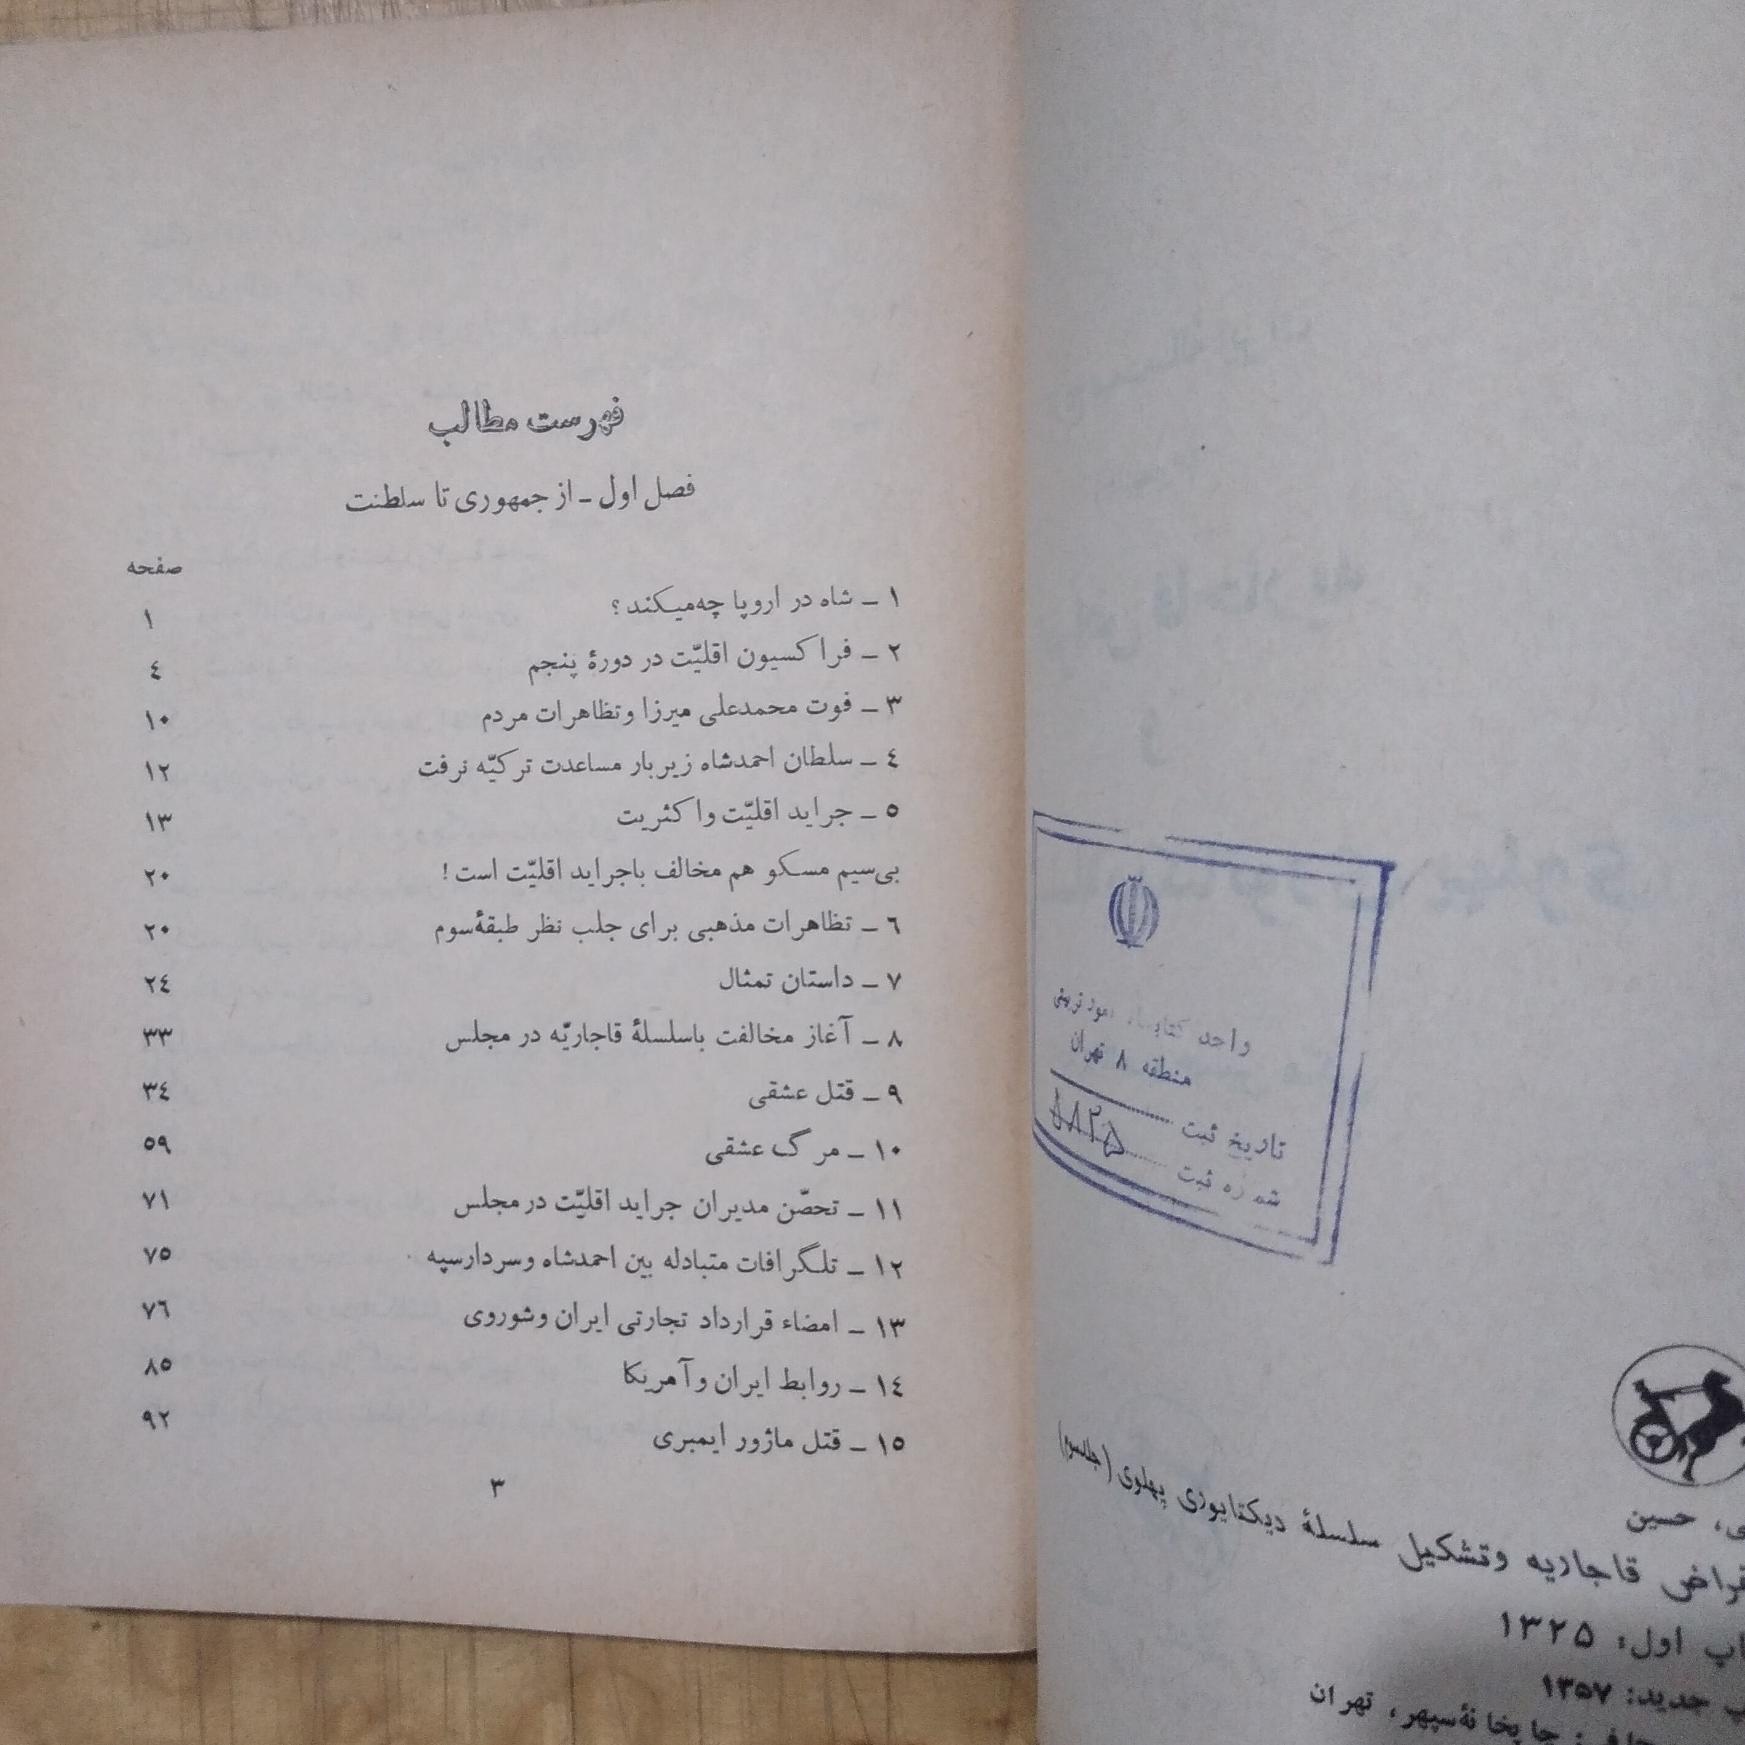 واحد
منطقه ۸ تهران
تاریخ ثبت
شماره ثبت
حسین
قاجاریه وتشکیل سلسلهٔ دیکتاتوری پهلوی (جلدسوم)
اول: ۱۳۲۵
جدید: ۱۳۵۷
چاپخانهٔ سپهر، تهران
فهرست مطالب
فصل اول ـ از جمهوری تا سلطنت
صفحه
۱ ـ شاه در اروپا چه‌میکند؟ ۱
۲ ـ فراکسیون اقلیّت در دورهٔ پنجم ٤
۳ ـ فوت محمدعلی میرزا وتظاهرات مردم ۱۰
٤ ـ سلطان احمدشاه زیربار مساعدت ترکیّه نرفت ۱۲
٥ ـ جراید اقلیّت واکثریت ۱۳
بی‌سیم مسکو هم مخالف باجراید اقلیّت است! ۲۰
٦ ـ تظاهرات مذهبی برای جلب نظر طبقهٔ‌سوم ۲۰
۷ ـ داستان تمثال ۲٤
۸ ـ آغاز مخالفت باسلسلهٔ قاجاریّه در مجلس ۳۳
۹ ـ قتل عشقی ۳٤
۱۰ ـ مرگ عشقی ٥۹
۱۱ ـ تحصّن مدیران جراید اقلیّت در مجلس ۷۱
۱۲ ـ تلگرافات متبادله بین احمدشاه وسردارسپه ۷٥
۱۳ ـ امضاء قرارداد تجارتی ایران وشوروی ۷٦
۱٤ ـ روابط ایران وآمریکا ۸٥
۱٥ ـ قتل ماژور ایمبری ۹۲
۳